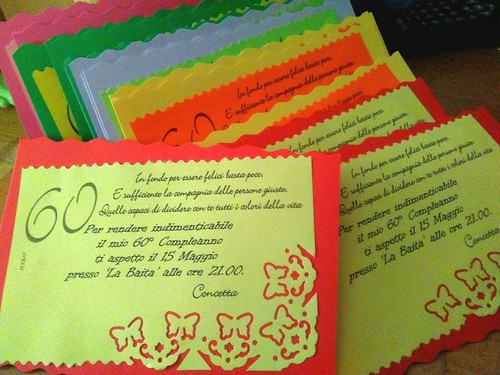 60
In fondo per essere felici basta poco.
E sufficiente la compagnia delle persone giuste.
Quelle capaci di dividere con te tutti i colori della vita
Per rendere indimenticabile
il mio 60° Compleanno
ti aspetto il 15 Maggio
presso 'La Baita' alle ore 21.00.
Concetta
In fondo per essere felici basta poco.
E sufficiente la compagnia delle persone giuste.
Quelle capaci di dividere con te tutti i colori della vita
Per rendere indimenticabile
il mio 60° Compleanno
ti aspetto il 15 Maggio
presso 'La Baita' alle ore 21.00.
Concetta
60
In fondo per essere felici basta poco.
E sufficiente la compagnia delle persone giuste.
In fondo per essere felici basta poco.
In fondo per essere felici basta poco.